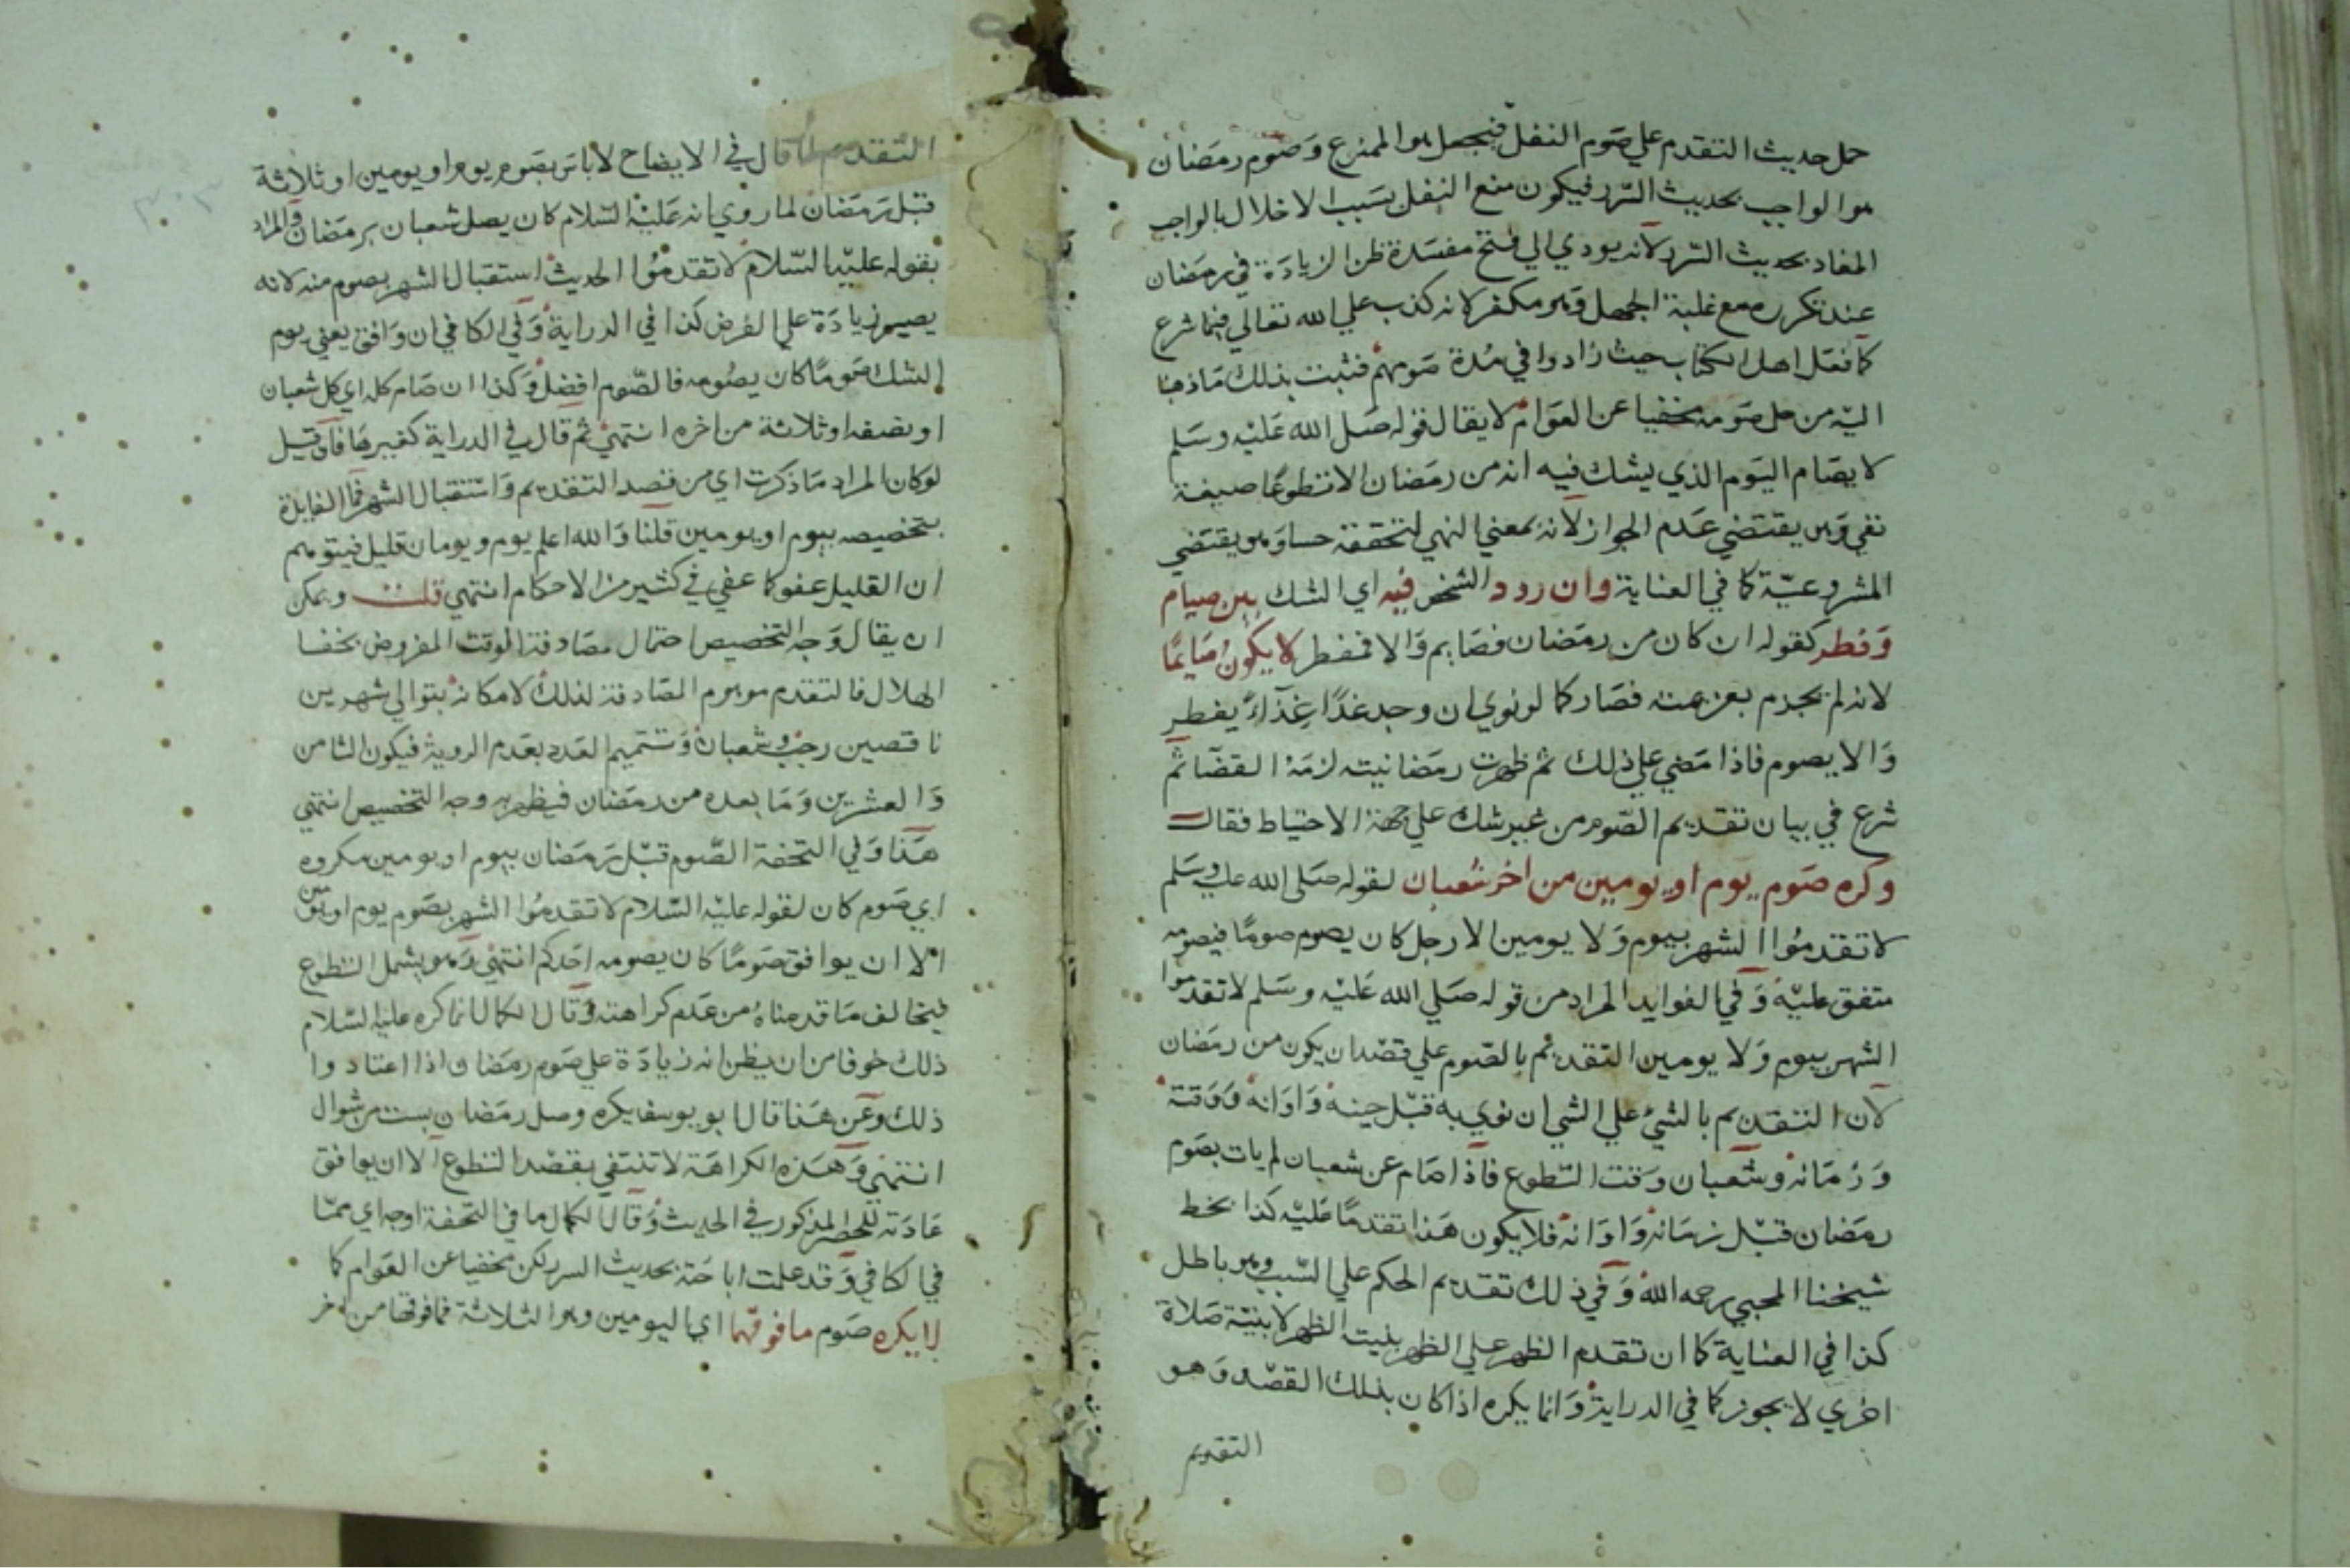 حمل حديث التقدم علي صوم النفل فيجعل هو الممنوع وصوم رمضان
هو الواجب بحديث السرر فيكون منع النفل بسبب الاخلال بالواجب
المفاد بحديث السرر لانه يودي الي فتح مفسدة ظن الزيادة في رمضان
عند تكرره مع غلبة الجهل وهو مكفر لانه كذب علي الله تعالي فيما شرع
كما فعل اهل الكتاب حيث زادوا في مدة صومهم فثبت بذلك ما ذهبنا
اليه من حل صومه مخفيا عن العوام لا يقال قوله صلي الله عليه وسلم
لا يصام اليوم الذي يشك فيه انه من رمضان الا تطوعا صيغة
نفي وهو يقتضي عدم الجواز لانه بمعني النهي لتحققه حسا وهو يقتضي
المشروعية كما في العناية وان ردد الشخص فيه اي الشك بين صيام
وفطر كقوله ان كان من رمضان فصايم والا فمفطر لا يكون صايما
لانه لم يجزم بعزيمته فصار كما لو نوي ان وجد غدا غذاء يفطر
والا يصوم فاذا مضي علي ذلك ثم ظهرت رمضانيته لزمه القضا ثم
شرع في بيان تقديم الصوم من غير شك علي جهة الاحتياط فقال
وكره صوم يوم او يومين من اخر شعبان لقوله صلي الله عليه وسلم
لا تقدموا الشهر بيوم ولا يومين الا رجل كان يصوم صوما فيصومه
متفق عليه وفي الفوايد المراد من قوله صلي الله عليه وسلم لا تقدموا
الشهر بيوم ولا يومين التقديم بالصوم علي قصد ان يكون من رمضان
لان التقديم بالشيء علي الشي ان نوي به قبل حينه واوانه ووقته
وزمانه وشعبان وقت التطوع فاذا صام عن شعبان لم يات بصوم
رمضان قبل زمانه واوانه فلا يكون هذا تقدما عليه كذا بخط
شيخنا المحبي رحمه الله وفي ذلك تقديم الحكم علي السبب وهو باطل
كذا في العناية كما ان تقدم الظهر علي الظهر بنيت الظهر لا بنية صلاة
اخري لا يجوز كما في الدراية وانما يكره اذا كان بذلك القصد وهو
التقديم
التقدم لما قال في الايضاح لا باس بصوم يوم او يومين او ثلاثة
قبل رمضان لما روي انه عليه السلام كان يصل شعبان برمضان والمراد
بقوله عليه السلام لا تقدموا الحديث استقبال الشهر بصوم منه لانه
يصير زيادة علي الفرض كذا في الدراية وفي الكافي ان وافق يعني يوم
الشك صوما كان يصومه فالصوم افضل وكذا ان صام كله اي كل شعبان
او نصفه او ثلاثة من اخره انتهي ثم قال في الدراية كغيرها فان قيل
لو كان المراد ما ذكرت اي من قصد التقديم واستقبال الشهر فما الفايدة
بتخصيصه بيوم او يومين قلنا والله اعلم يوم ويومان قليل فيتوهم
ان القليل عفو كما عفي في كثير من الاحكام انتهي قلت ويمكن
ان يقال وجه التخصيص احتمال مصادفة الوقت المفروض بخفا
الهلال فالتقدم موهوم المصادفة لذلك لامكانه بتوالي شهرين
ناقصين رجب وشعبان وتتميم العدد بعدم الروية فيكون الثامن
والعشرين وما بعده من رمضان فيظهر به وجه التخصيص انتهي
هذا وفي التحفة الصوم قبل رمضان بيوم او يومين مكروه
اي صوم كان لقوله عليه السلام لا تقدموا الشهر بصوم يوم او يومين
الا ان يوافق صوما كان يصومه احدكم انتهي وهو يشمل التطوع
فيخالف ما قدمناه من عدم كراهته وقال الكمال انما كره عليه السلام
ذلك خوفا من ان يظن انه زيادة علي صوم رمضان اذا اعتادوا
ذلك وعن هذا قال ابو يوسف يكره وصل رمضان بست من شوال
انتهي وهذه الكراهة لا تنتفي بقصد التطوع الا ان يوافق
عادته للحظر المذكور في الحديث وقال الكمال ما في التحفة اوجه اي مما
في الكافي وقد علمت اباحته بحديث السرر لكن مخفيا عن العوام كما
لا يكره صوم ما فوقهما اي اليومين وهو الثلاثة فما فوقها من اخر